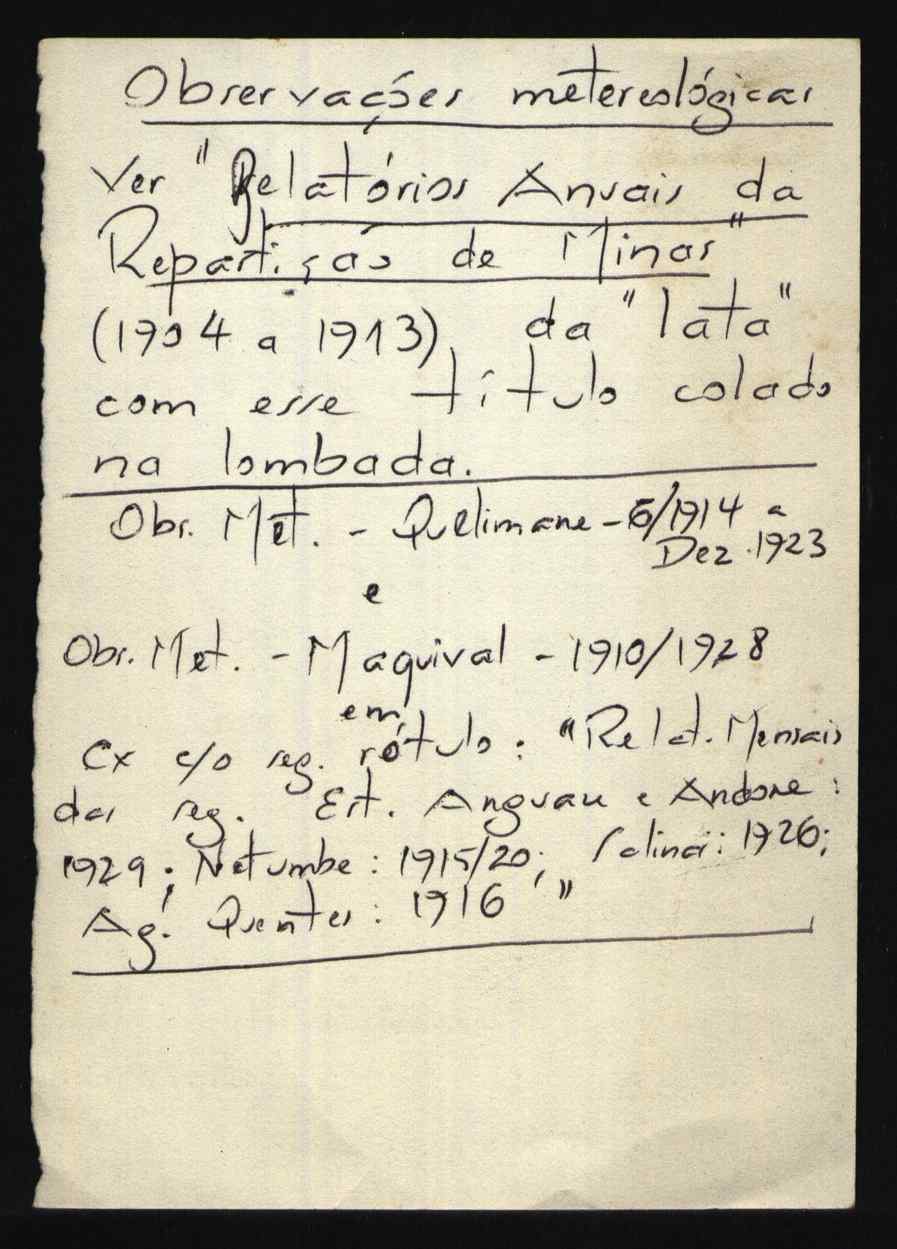 Observações metereológicas
Ver "Relatórios Anuais da
Repartição de Minas"
(1904 a 1913) da "lata"
com esse título colado
na lombada.
Obs. Met. - Quelimane - 6/1914 a
Dez. 1923
e
Obs. Met. - Maquival - 1910/1928
em
Cx c/o seg. rótulo: "Relat. Mensais
das seg. Est. Anguau e Andone:
1929; Natumbe: 1915/20; Salinas: 1926;
Ág. Quentes: 1916"